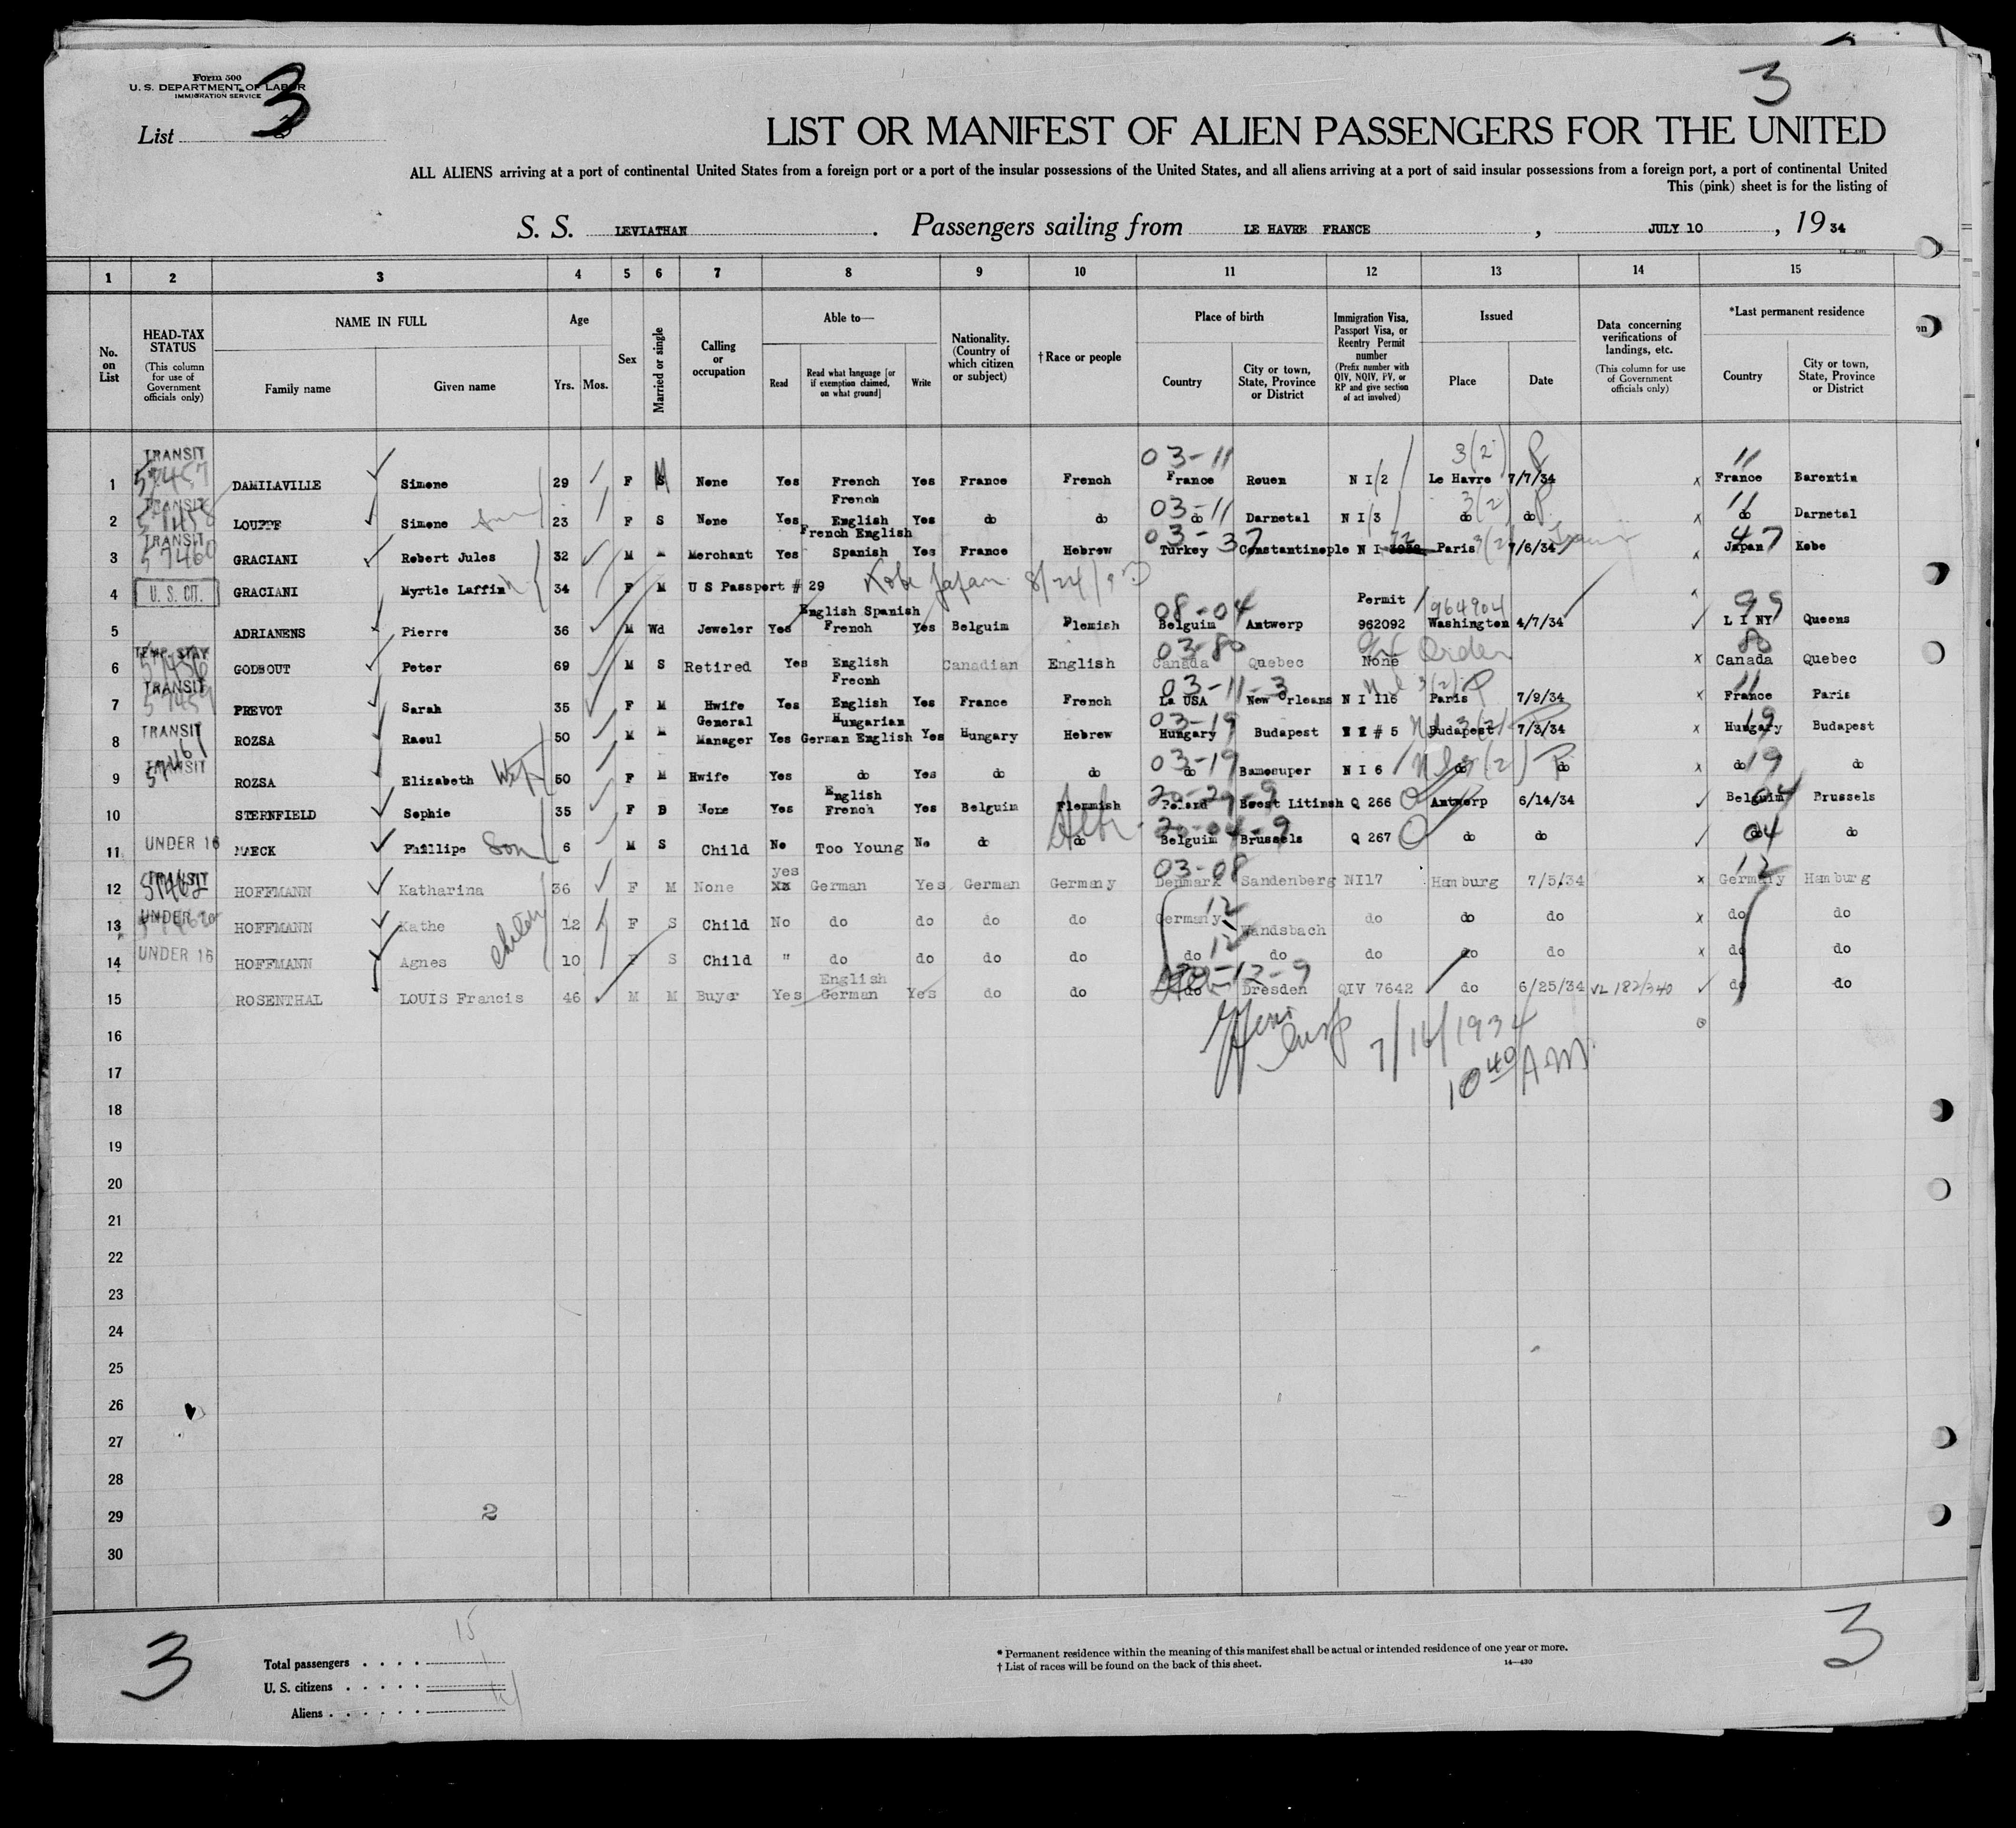 3
3
Form 500
U. S. DEPARTMENT OF LABOR
IMMIGRATION SERVICE
List
LIST OR MANIFEST OF ALIEN PASSENGERS FOR THE UNITED
ALL ALIENS arriving at a port of continental United States from a foreign port or a port of the insular possessions of the United States, and all aliens arriving at a port of said insular possessions from a foreign port, a port of continental United
This (pink) sheet is for the listing of
S. S. LEVIATHAN . Passengers sailing from LE HAVRE FRANCE , JULY 10 , 19 34
1 2 3 4 5 6 7 8 9 10 11 12 13 14 15
No. on List
HEAD-TAX STATUS (This column for use of Government officials only)
NAME IN FULL
Family name Given name
Age
Yrs. Mos.
Sex
Married or single
Calling or occupation
Able to—
Read Read what language [or if exemption claimed, on what ground] Write
Nationality. (Country of which citizen or subject)
† Race or people
Place of birth
Country City or town, State, Province or District
Immigration Visa, Passport Visa, or Reentry Permit number (Prefix number with QIV, NQIV, PV, or RP and give section of act involved)
Issued
Place Date
Data concerning verifications of landings, etc. (This column for use of Government officials only)
*Last permanent residence
Country City or town, State, Province or District
1 TRANSIT 57457 DAMILAVILLE Simone 29 F S M None Yes French Yes France French 03-11 France Rouen N I 2 3(2) Le Havre 7/7/34 x 11 France Barentin
2 TRANSIT 57458 LOUPPE Simone 23 F S None Yes French English Yes do do 03-11 do Darnetal N I 3 3(2) do do x 11 do Darnetal
3 TRANSIT 57460 GRACIANI Robert Jules 32 M M Merchant Yes French English Spanish Yes France Hebrew 03-37 Turkey Constantinople N I Paris 3(2) 7/6/34 x 47 Japan Kobe
4 U. S. CIT. GRACIANI Myrtle Laffin 34 F M U S Passport # 29 Kobe Japan 8/24/ x
5 ADRIANENS Pierre 36 M Wd Jeweler Yes English Spanish French Yes Belguim Flemish 08-04 Belguim Antwerp Permit 962092 964904 Washington 4/7/34 99 L I NY Queens
6 TEMP. STAY 57456 GODBOUT Peter 69 M S Retired Yes English Canadian English 03-80 Canada Quebec None Order x 80 Canada Quebec
7 TRANSIT 57459 PREVOT Sarah 35 F M Hwife Yes Frecnh English Yes France French 03-11-3 La USA New Orleans N I 116 3(2) Paris 7/9/34 x 11 France Paris
8 TRANSIT 57461 ROZSA Raoul 50 M M General Manager Yes Hungarian German English Yes Hungary Hebrew 03-19 Hungary Budapest # 5 3(2) Budapest 7/3/34 x 19 Hungary Budapest
9 TRANSIT ROZSA Elizabeth Wife 50 F M Hwife Yes do Yes do do 03-19 do Bamosuper N I 6 3(2) do do x 19 do do
10 STERNFIELD Sophie 35 F D None Yes English French Yes Belguim Flemmish 20-29-9 Poland Brest Litinsh Q 266 Antwerp 6/14/34 04 Belguim Brussels
11 UNDER 16 MAECK Phillipe Son 6 M S Child No Too Young No do do Heb. 20-04-9 Belguim Brussels Q 267 do do 04 do do
12 TRANSIT 57462 HOFFMANN Katharina 36 F M None yes xx German Yes German Germany 03-08 Denmark Sandenberg NI17 Hamburg 7/5/34 x 12 Germany Hamburg
13 UNDER HOFFMANN Kathe children 12 F S Child No do do do do 12 Germany Wandsbach do do do x do do
14 UNDER 16 HOFFMANN Agnes 10 F S Child " do do do do 12 do do do do do x do do
15 ROSENTHAL LOUIS Francis 46 M M Buyer Yes English German Yes do do 20-12-9 do Dresden QIV 7642 do 6/25/34 VL 182/340 do do
16
Insp 7/16/1934
10 40 AM
17
18
19
20
21
22
23
24
25
26
27
28
29 2
30
3
15
Total passengers
U. S. citizens 1
Aliens 14
* Permanent residence within the meaning of this manifest shall be actual or intended residence of one year or more.
† List of races will be found on the back of this sheet.
14—430
3